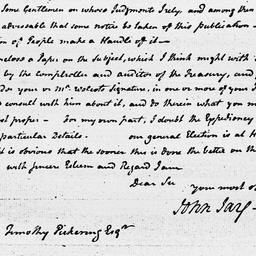 Some Gentlemen on whose Judgments I rely, and among them
adviseable that some notice be taken of this publication—
of People make a Handle of it—
enclose a Paper on the Subject, which I think might with
by the comptroller and auditor of the Treasury, and
under your or Mr. Wolcots Signature, in one or more of your
consult with him about it, and do therein what you m
proper— for my own part, I doubt the Expediency
particular Details. our general Election is at H
it is obvious that the sooner this is done the better on th
with sincere Esteem and Regard I am
Dear Sir
your most ob
John Jay—
Timothy Pickering Esqr